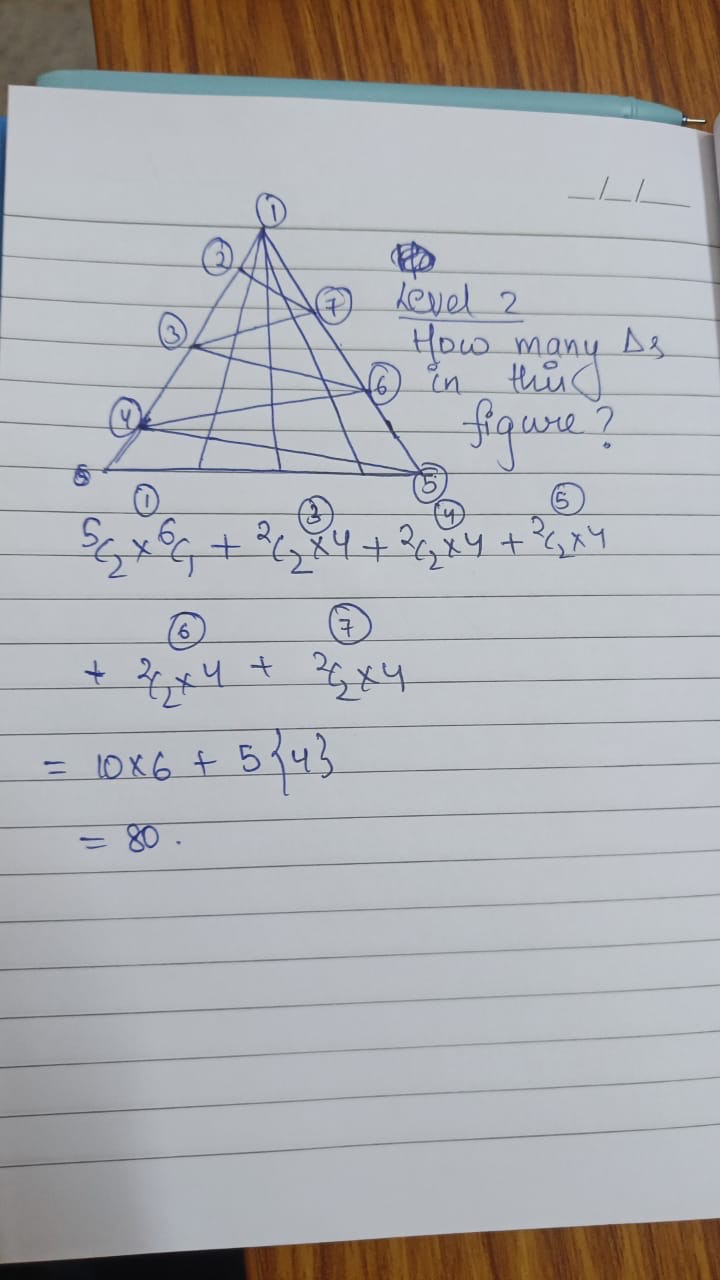 _/_/__
①
②
⑦
Level 2
③
How many Δs
⑥
in this
④
figure?
⑤
① ③ ④ ⑤
⁵C₂ × ⁶C₁ + ²C₂ × 4 + ²C₂ × 4 + ²C₂ × 4
⑥ ⑦
+ ²C₂ × 4 + ²C₂ × 4
= 10 × 6 + 5 {4}
= 80 .